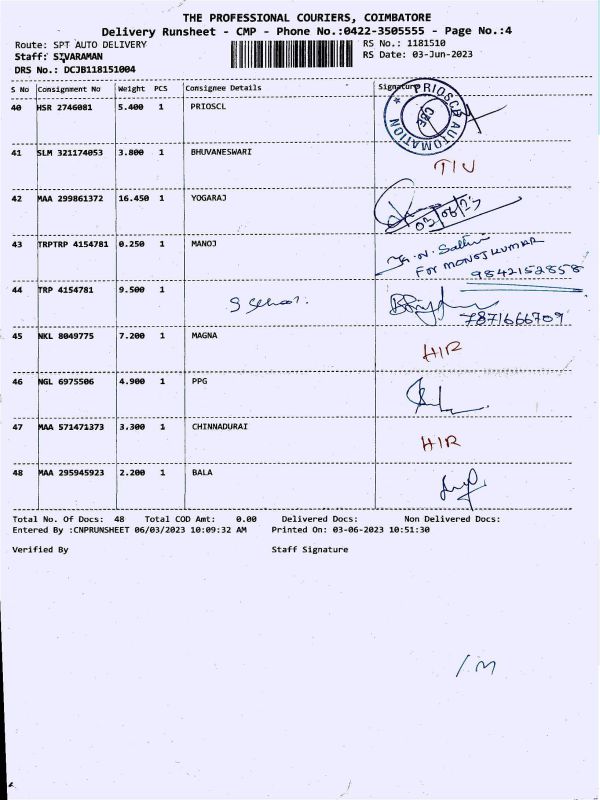 THE PROFESSIONAL COURIERS, COIMBATORE
Delivery Runsheet - CMP - Phone No.:0422-3505555 - Page No.:4
Route: SPT AUTO DELIVERY
RS No.: 1181510
Staff: SIVARAMAN
RS Date: 03-Jun-2023
DRS No.: DCJB118151004
S No Consignment No Weight PCS Consignee Details Signature
40 HSR 2746081 5.400 1 PRIOSCL
PRIOSCL AUTOMATION
CBE
41 SLM 321174053 3.800 1 BHUVANESWARI
42 MAA 299861372 16.450 1 YOGARAJ
03/06/23
43 TRPTRP 4154781 0.250 1 MANOJ
For MONOJ KUMAR
9842152858
44 TRP 4154781 9.500 1
7871666709
45 NKL 8049775 7.200 1 MAGNA
HIR
46 NGL 6975506 4.900 1 PPG
47 MAA 571471373 3.300 1 CHINNADURAI
HIR
48 MAA 295945923 2.200 1 BALA
Total No. Of Docs: 48 Total COD Amt: 0.00 Delivered Docs: Non Delivered Docs:
Entered By :CNPRUNSHEET 06/03/2023 10:09:32 AM Printed On: 03-06-2023 10:51:30
Verified By Staff Signature